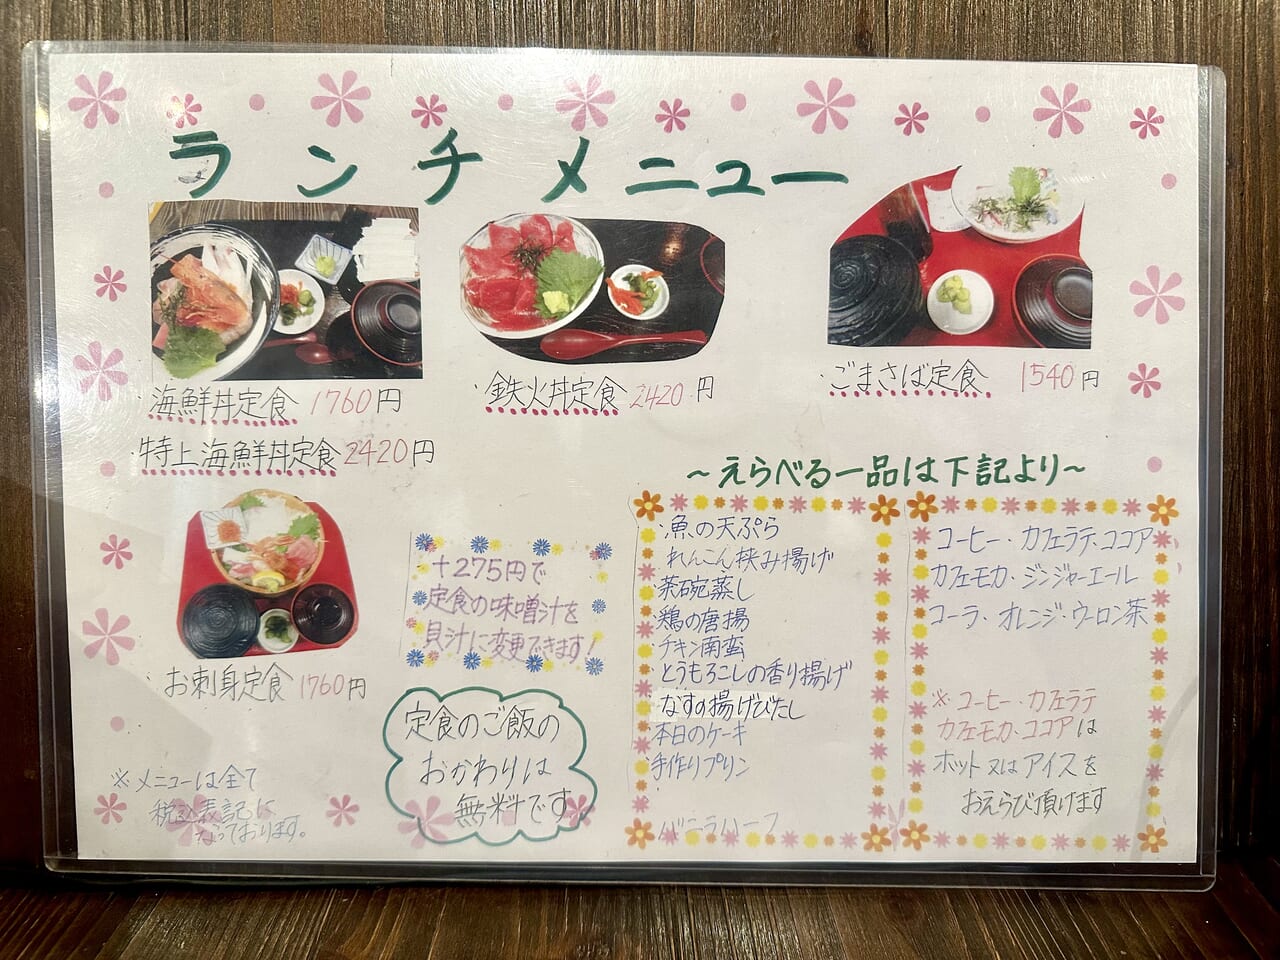 ランチメニュー
・海鮮丼定食 1760円
・特上海鮮丼定食 2420円
・鉄火丼定食 2420円
・ごまさば定食 1540円
・お刺身定食 1760円
+275円で
定食の味噌汁を
貝汁に変更できます!
定食のご飯の
おかわりは
無料です
※メニューは全て
税込表記に
なっております。
~えらべる一品は下記より~
・魚の天ぷら
れんこん挟み揚げ
・茶碗蒸し
・鶏の唐揚
・チキン南蛮
・とうもろこしの香り揚げ
なすの揚げびたし
・本日のケーキ
・手作りプリン
バニラハーフ
コーヒー・カフェラテ・ココア
カフェモカ・ジンジャーエール
コーラ・オレンジ・ウーロン茶
※コーヒー・カフェラテ
カフェモカ・ココアは
ホット又はアイスを
おえらび頂けます